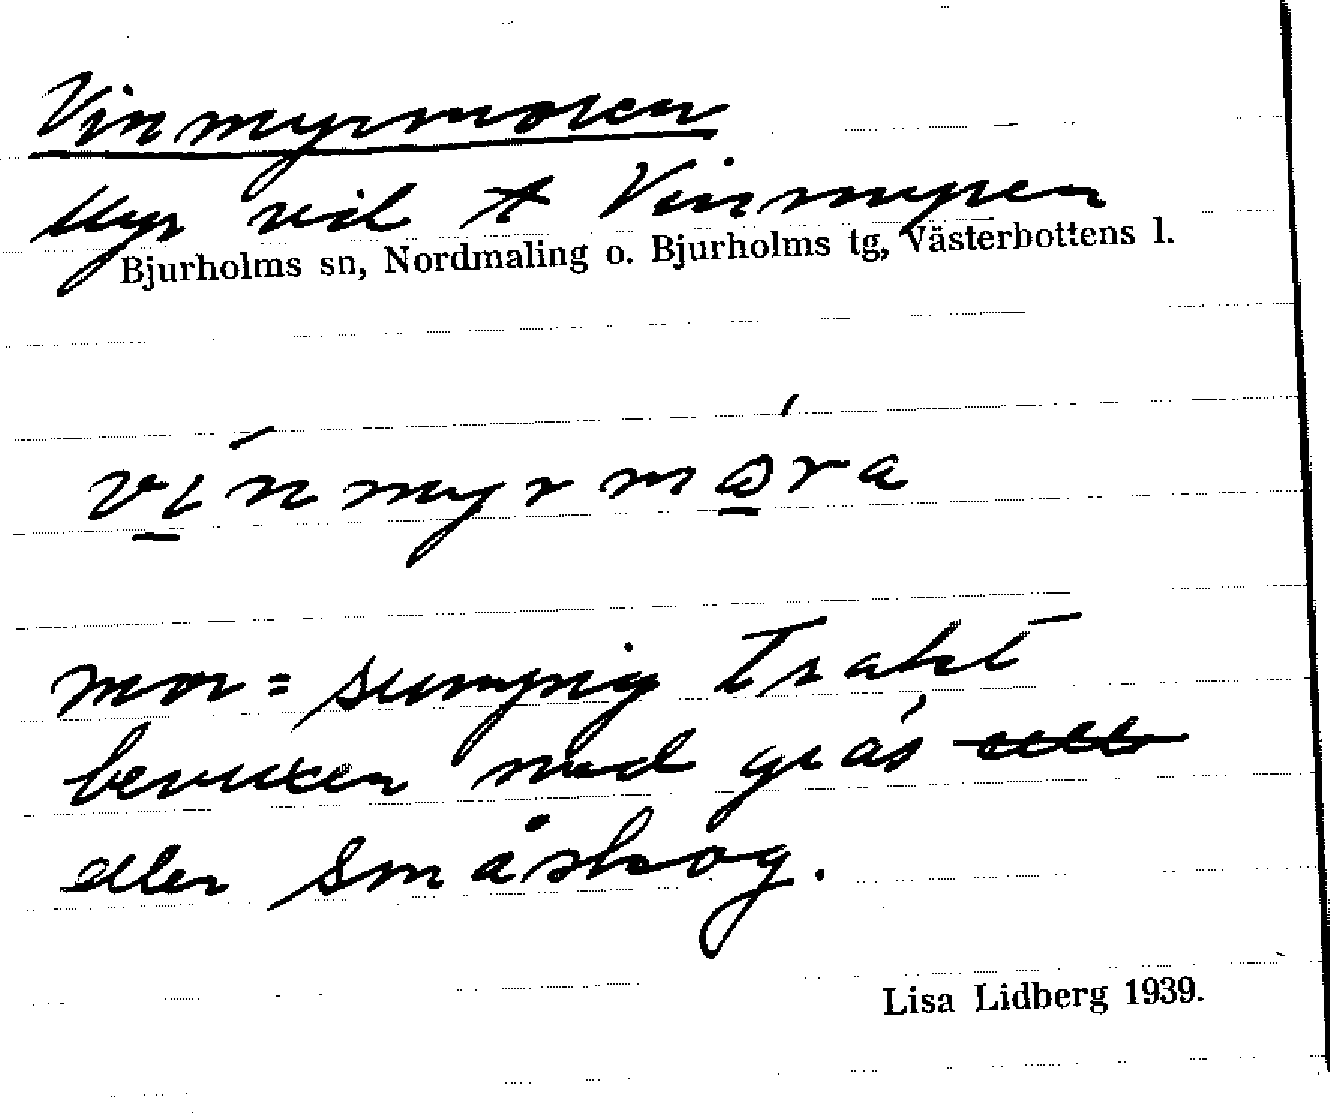 Vinmyrmoren
Myr vid A Vinmyren
Bjurholms sn, Nordmaling o. Bjurholms tg, Västerbottens l.
ví̲nmyrmǻ̲ra
mor = sumpig trakt
bevuxen med gräs
eller småskog.
Lisa Lidberg 1939.